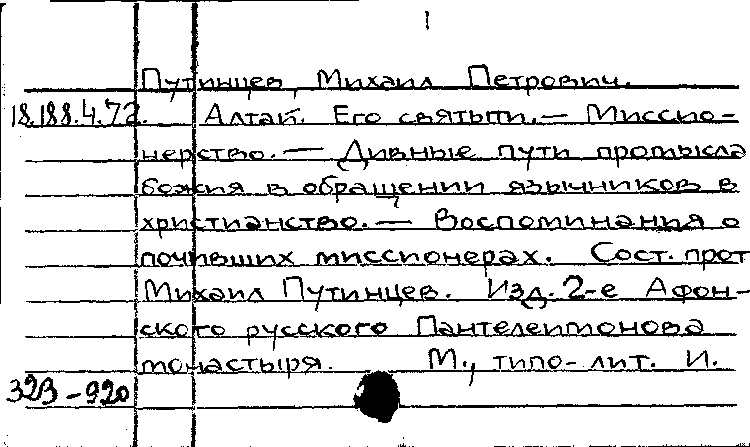 1
Путинцев, Михаил Петрович.
18.188.4.72. Алтай. Его святыни. — Миссио-
нерство. — Дивные пути промысла
божия в обращении язычников в
христианство. — Воспоминания о
почивших миссионерах. Сост. прот
Михаил Путинцев. Изд. 2-е Афон-
ского русского Пантелеимонова
монастыря. М., типо-лит. И.
32В-920